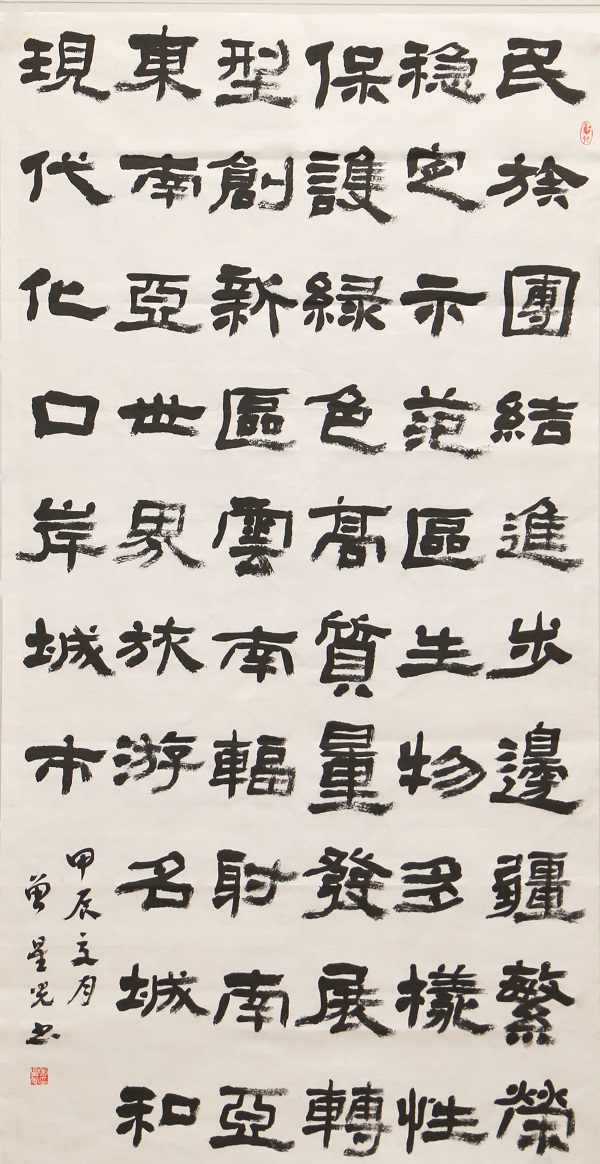 民族團結進步邊疆繁榮
稳定示范區生物多樣性
保護緑色高質量發展轉
型創新區雲南輻射南亞
東南亞世界旅游名城和
現代化口岸城市
甲辰夏月
曾星光书